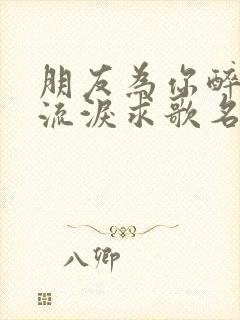 朋友為你醉
流淚求歌名
八卿